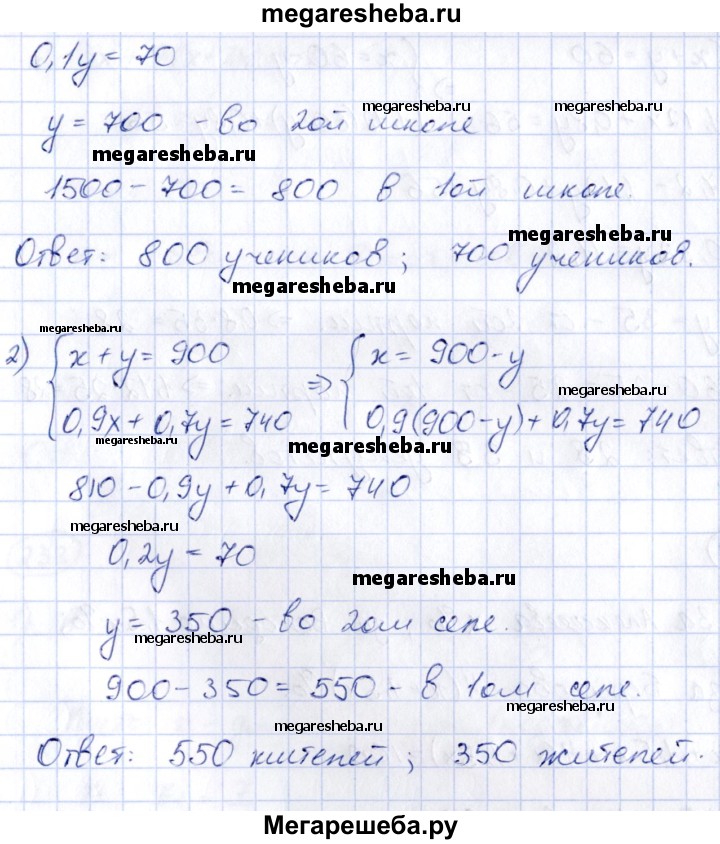 megaresheba.ru
0,1y = 70
megaresheba.ru megaresheba.ru
y = 700 - во 2ой школе
megaresheba.ru
1500 - 700 = 800 в 1ой школе.
megaresheba.ru
Ответ: 800 учеников; 700 учеников.
megaresheba.ru
megaresheba.ru
2) { x + y = 900 ⇒ { x = 900 - y
megaresheba.ru
0,9x + 0,7y = 740 0,9(900-y) + 0,7y = 740
megaresheba.ru megaresheba.ru
810 - 0,9y + 0,7y = 740
megaresheba.ru
0,2y = 70
megaresheba.ru
y = 350 - во 2ом селе.
megaresheba.ru
900 - 350 = 550 - в 1ом селе.
megaresheba.ru
megaresheba.ru
Ответ: 550 жителей; 350 жителей.
megaresheba.ru
Мегарешеба.ру